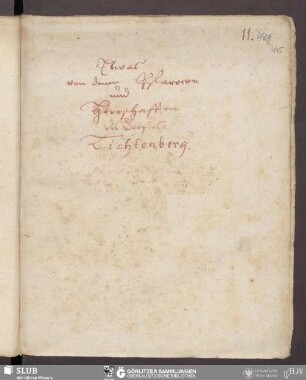 11.
Etwas
von denen Pfarrern
und
Herrschafften
Lichtenberg.
SLUB
Wir führen Wissen.
GÖRLITZER SAMMLUNGEN
OBERLAUSITZISCHE BIBLIOTHEK